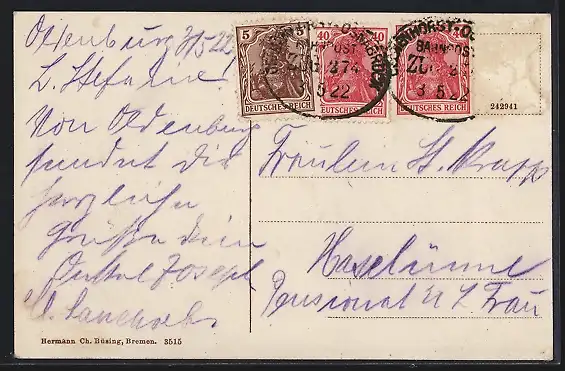 Oldenburg 3/5 22
L. Stefanie!
Von Oldenburg
sendet die
herzliche
Grüße dein
Onkel Joseph
Fräulein St. Krapp
Haselünne
Pensionat U. L. Frau
5 5
DEUTSCHES REICH
40 40
DEUTSCHES REICH
40
DEUTSCHES REICH
BAHNPOST
ZUG 274
3 5 22
BAHNPOST
ZUG
3 5 22
242941
Hermann Ch. Büsing, Bremen. 3515